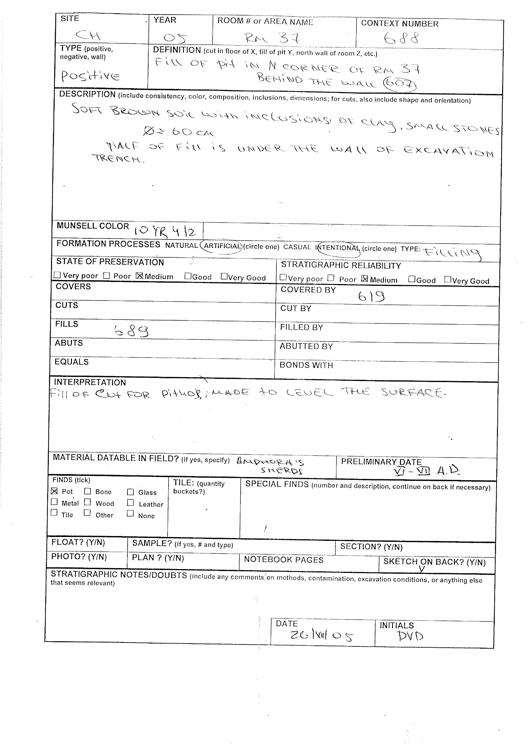 SITE YEAR ROOM # or AREA NAME CONTEXT NUMBER
CH 05 RM 37 688
TYPE (positive, negative, wall) DEFINITION (cut in floor of X, fill of pit Y, north wall of room Z, etc.)
Positive Fill of pit in N CORNER OF RM 37
BEHIND THE WALL (607)
DESCRIPTION (include consistency, color, composition, inclusions, dimensions; for cuts, also include shape and orientation)
SOFT BROWN SOIL WITH INCLUSIONS OF CLAY, SMALL STONES
Ø ≈ 60 cm
HALF OF FILL IS UNDER THE WALL OF EXCAVATION
TRENCH.
MUNSELL COLOR 10 YR 4/2
FORMATION PROCESSES NATURAL ARTIFICIAL (circle one) CASUAL INTENTIONAL (circle one) TYPE: FILLING
STATE OF PRESERVATION STRATIGRAPHIC RELIABILITY
☐ Very poor ☐ Poor ☒ Medium ☐ Good ☐ Very Good ☐ Very poor ☐ Poor ☒ Medium ☐ Good ☐ Very Good
COVERS COVERED BY 619
CUTS CUT BY
FILLS 689 FILLED BY
ABUTS ABUTTED BY
EQUALS BONDS WITH
INTERPRETATION
Fill OF Cut FOR Pithos; MADE TO LEVEL THE SURFACE.
MATERIAL DATABLE IN FIELD? (if yes, specify) AMPHORA'S SHERDS PRELIMINARY DATE VI – VII A.D.
FINDS (tick) TILE: (quantity buckets?) SPECIAL FINDS (number and description, continue on back if necessary)
☒ Pot ☐ Bone ☐ Glass
☐ Metal ☐ Wood ☐ Leather
☐ Tile ☐ Other ☐ None
FLOAT? (Y/N) SAMPLE? (if yes, # and type) SECTION? (Y/N)
PHOTO? (Y/N) PLAN ? (Y/N) NOTEBOOK PAGES SKETCH ON BACK? (Y/N)
Y
STRATIGRAPHIC NOTES/DOUBTS (include any comments on methods, contamination, excavation conditions, or anything else that seems relevant)
DATE INITIALS
26/VII/05 DVD